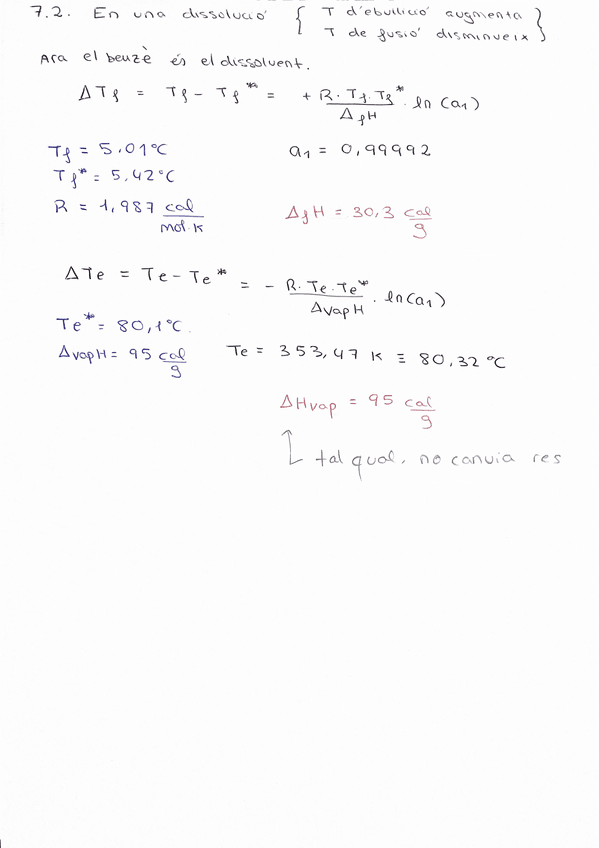 7.2. En una dissolució { T d'ebullició augmenta
T de fusió disminueix }
Ara el benzè és el dissolvent.
ΔTf = Tf - Tf* = + R·Tf·Tf* / ΔfH · ln(a1)
Tf = 5,01°C a1 = 0,99992
Tf* = 5,42°C
R = 1,987 cal / mol·K ΔfH = 30,3 cal / g
ΔTe = Te - Te* = - R·Te·Te* / ΔvapH · ln(a1)
Te* = 80,1°C.
ΔvapH = 95 cal / g Te = 353,47 K ≡ 80,32°C
ΔHvap = 95 cal / g
tal qual, no canvia res